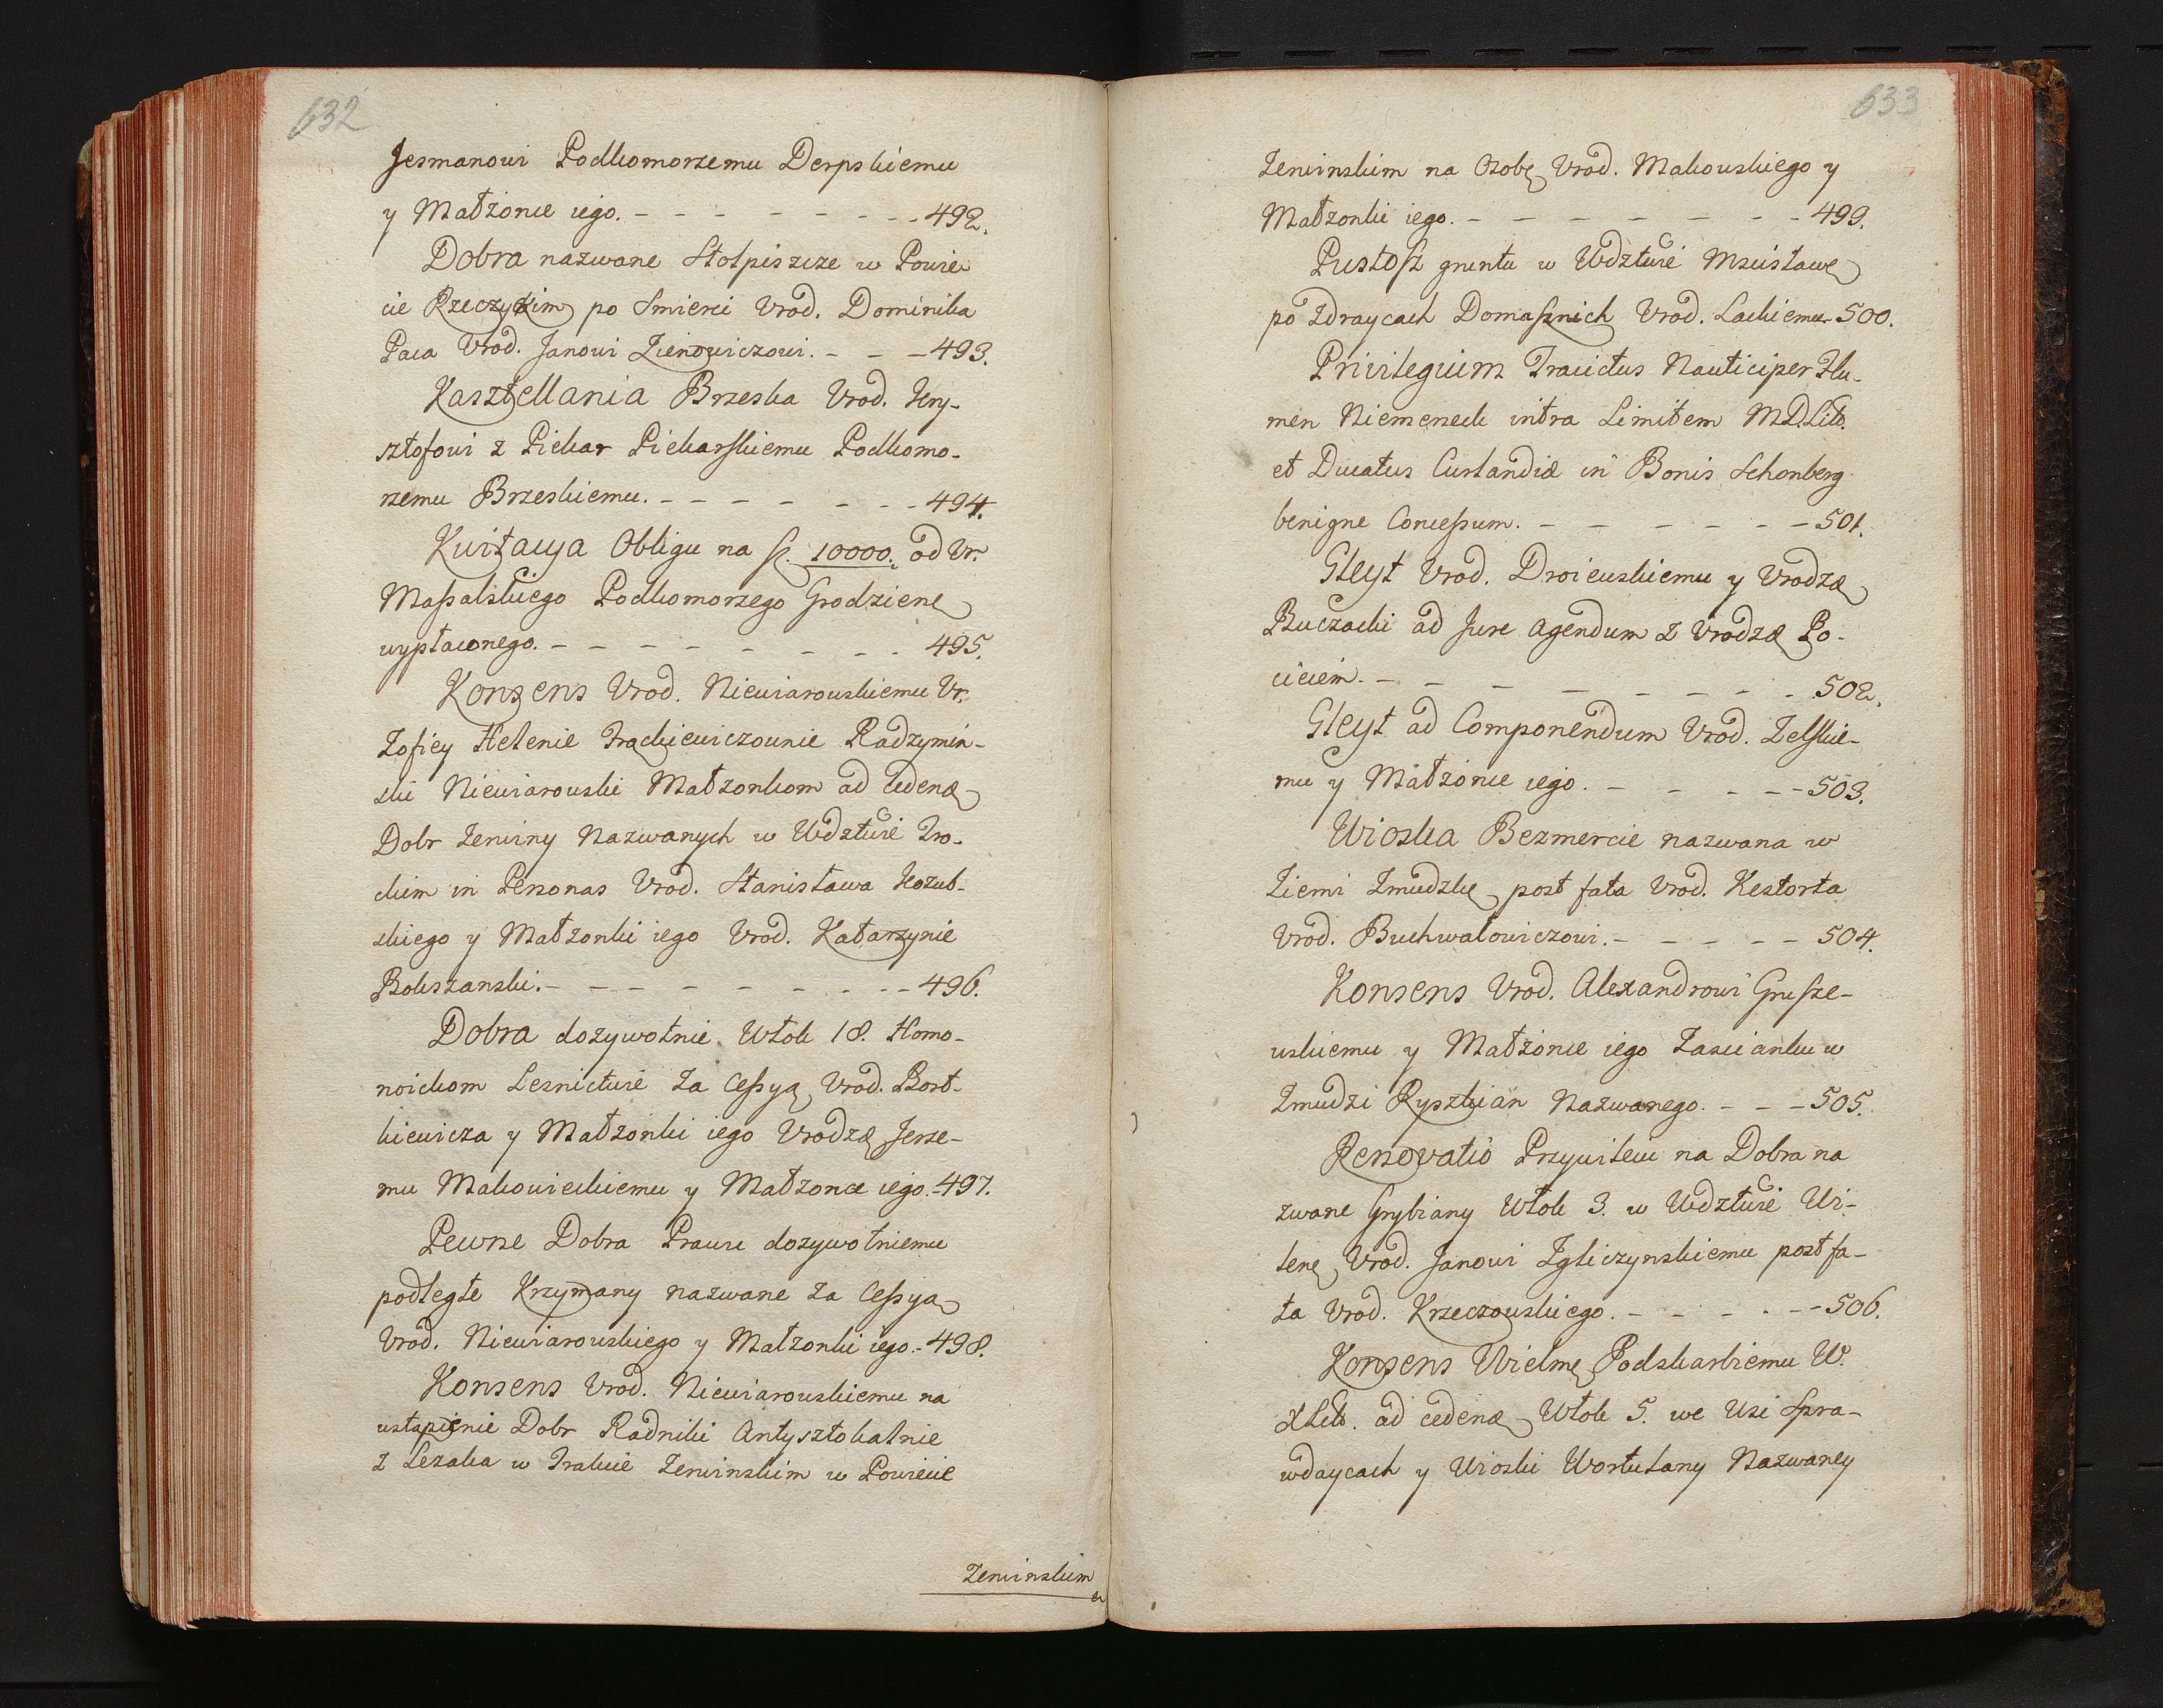 632
Jesmanowi Podkomorzemu Derpskiemu
y Małżonce iego. - - - - - - - - 492.
Dobra nazwane Stołpiszcze w Powie
cie Rzeczyckim po Smierci Vrod. Dominika
Paca Vrod. Janowi Zienowiczowi. - - - 493.
Kasztellania Brzeska Vrod. Kry-
sztofowi z Piekar Piekarskiemu Podkomo-
rzemu Brzeskiemu. - - - - - - - 494.
Kwitacya Obligu na 10000. od Vr.
Massalskiego Podkomorzego Grodziene
wypłaconego. - - - - - - - - 495.
Konsens Vrod. Niewiarowskiemu Vr.
Zofiey Helenie Frąckiewiczownie Radzymin-
ski Niewiarowski Małżonkom ad cedena
Dobr Zewiny Nazwanych w Wdztwie Tro-
ckim in Personas Vrod. Stanisława Kozub-
skiego y Małżonki iego Vrod. Katarzynie
Bokszanski. - - - - - - - - - 496.
Dobra dozywotnie Włok 18. Homo-
noickom Lesnictwie Za Cessyą Vrod. Bort-
kiewicza y Małżonki iego Vrodzæ Jerze-
mu Makowieckiemu y Małżonce iego. - 497.
Pewne Dobra Prawu dozywotniemu
podległe Krzymany nazwane za Cessya
Vrod. Niewiarowskiego y Małżonki iego. - 498.
Konsens Vrod. Niewiarowskiemu na
ustąpienie Dobr Radniki Antysztokalnie
z Lezaka w Trakcie Zewinskim w Powiecie
Zewinskim
633
Zewinskim na Osobę Vrod. Makowskiego y
Małżonki iego. - - - - - - - - 499.
Pustosz gruntu w Wdztwie Mscisławe
po Zdraycach Domasznich Vrod. Lackiemu - 500.
Privilegium Traictus Nautici per Flu-
men Niemeneck intra Limitem M.D.Litt.
et Ducatus Curlandiæ in Bonis Schonberg
benigne Concessum. - - - - - - - 501.
Gleyt Vrod. Droiewskiemu y Vrodzæ
Buczacki ad Jure agendum z Vrodzæ Po-
cieiem. - - - - - - - - - 502.
Gleyt ad Componendum Vrod. Zelskie-
mu y Małżonce iego. - - - - - 503.
Wioska Bezmercie nazwana w
Ziemi Zmudzke post fata Vrod. Kestorta
Vrod. Buchwałowiczowi. - - - - - 504.
Konsens Vrod. Alexandrowi Grusze-
wskiemu y Małżonce iego Zascianku w
Zmudzi Ryszkian Nazwanego. - - - 505.
Renovatio Przywileiu na Dobra na
zwane Grybiany Włok 3. w Wdztwie Wi-
lene Vrod. Janowi Zgliczynskiemu post fa-
ta Vrod. Krzeczowskiego. - - - - - - 506.
Konsens Wielme Podskarbiemu W.
XLitt. ad cedenæ Włok 5. we Wsi Spra-
wdaycach y Wioski Wortulany Nazwaney